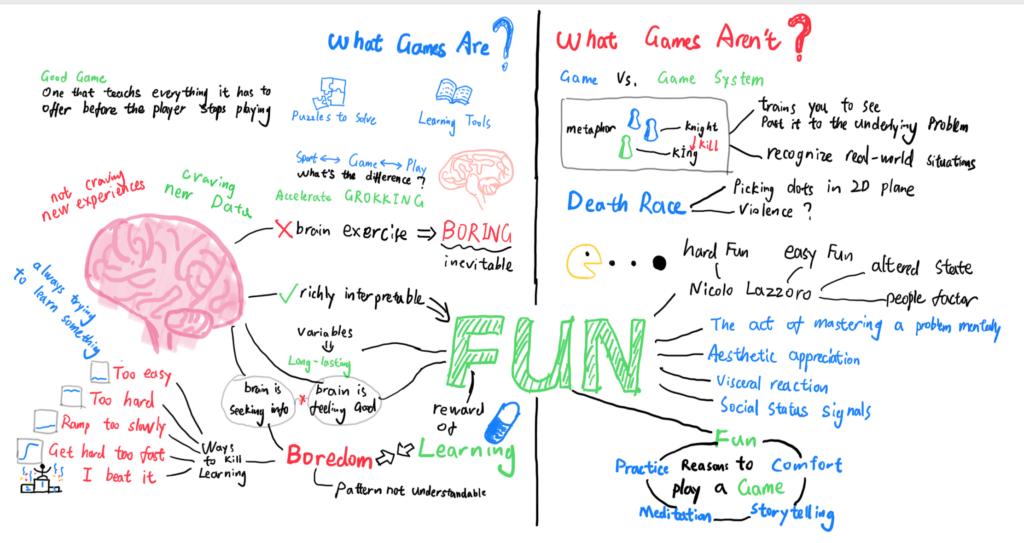 What Games Are?
Good Game
One that teachs everything it has to
offer before the player stops playing
Puzzles to Solve
Learning Tools
Sport ↔ Game ↔ Play
What's the difference?
Accelerate GROKKING
not craving
new experiences
craving
new Data
always trying
to learn something
X brain exercise ⇒ BORING
inevitable
✓ richly interpretable
Variables
⇓
Long-lasting
FUN
brain is
seeking info
*
brain is
feeling Good
reward
of
Learning
Too easy
Too hard
Ramp too slowly
Get hard too fast
I beat it
Ways
to kill
Learning
Boredom
Pattern not understandable
What Games Aren't?
Game Vs. Game System
metaphor
knight
↓ kill
king
trains you to see
Past it to the underlying Problem
recognize real-world situations
Death Race
Picking dots in 2D plane
Violence?
hard Fun
easy Fun
altered State
Nicolo Lazzoro
people factor
The act of mastering a problem mentally
Aesthetic appreciation
Visceral reaction
Social Status Signals
Fun
Practice
Reasons to
Comfort
play a Game
Meditation
Storytelling